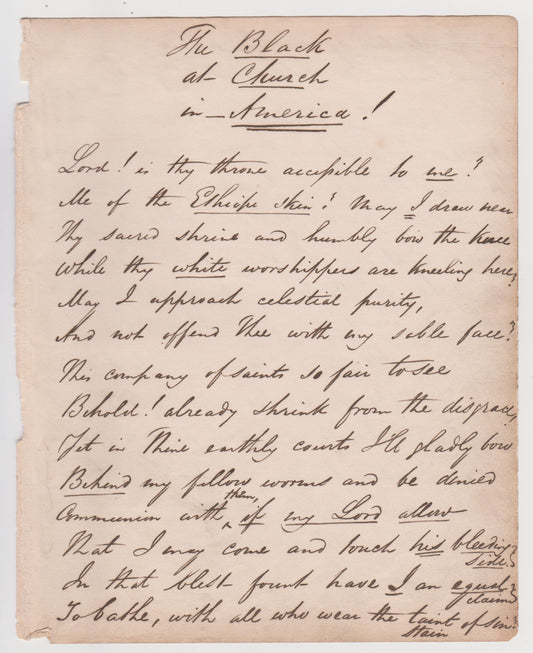 The Black
at Church
in - America!
Lord! is thy throne accessible to me?
Me of the Ethiope skin? May I draw near
Thy sacred shrine and humbly bow the knee
While thy white worshippers are kneeling here,
May I approach celestial purity,
And not offend Thee with my sable face?
This company of saints so fair to see
Behold! already shrink from the disgrace,
Yet in Thine earthly courts I'll gladly bow
Behind my fellow worms and be denied
Communion with them, if my Lord allow
That I may come and touch his bleeding side.
In that blest fount have I an equal claim
To bathe, with all who wear the taint of sin?
stain